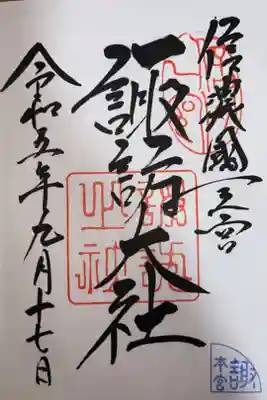 信濃國一之宮
諏訪大社
令和五年九月十七日
諏訪
之
神社
本宮
諏